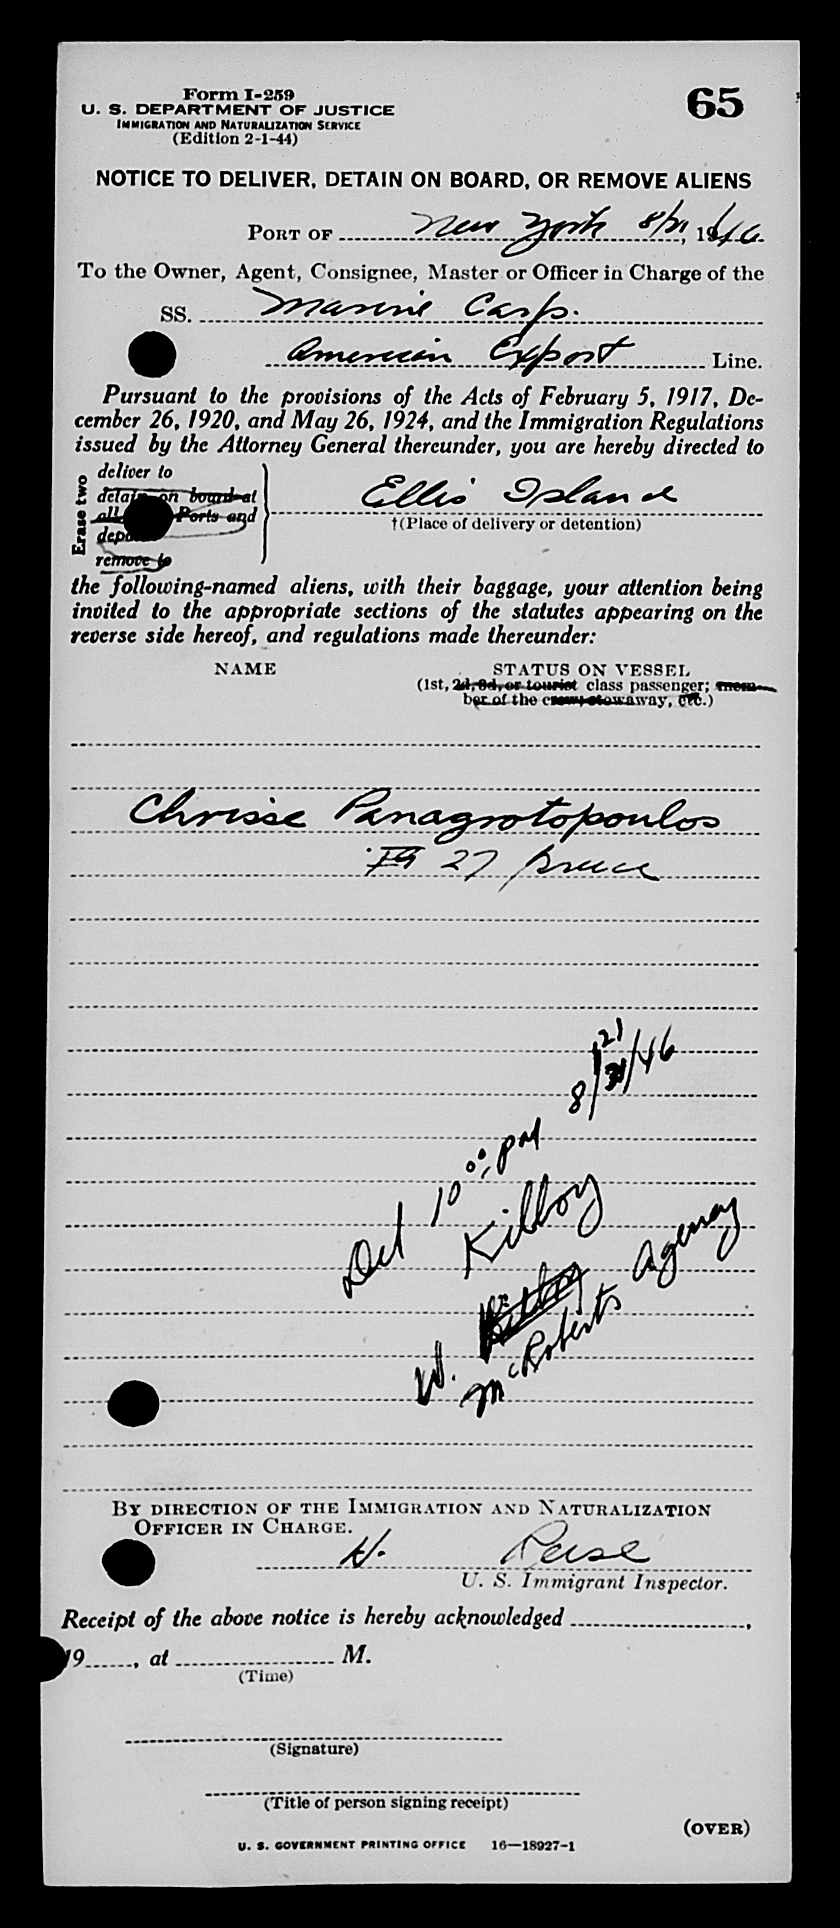 Form I-259
U. S. DEPARTMENT OF JUSTICE
IMMIGRATION AND NATURALIZATION SERVICE
(Edition 2-1-44)
65
NOTICE TO DELIVER, DETAIN ON BOARD, OR REMOVE ALIENS
PORT OF New York 8/21, 1946
To the Owner, Agent, Consignee, Master or Officer in Charge of the
SS. Marine Carp.
American Export Line.
Pursuant to the provisions of the Acts of February 5, 1917, De-
cember 26, 1920, and May 26, 1924, and the Immigration Regulations
issued by the Attorney General thereunder, you are hereby directed to
Erase two
deliver to
detain on board at
all Ports and
remove to
Ellis Island
†(Place of delivery or detention)
the following-named aliens, with their baggage, your attention being
invited to the appropriate sections of the statutes appearing on the
reverse side hereof, and regulations made thereunder:
NAME STATUS ON VESSEL
(1st, 2d, 3d, or tourist class passenger; mem-
ber of the crew, stowaway, etc.)
Chrisse Panagrotopoulos
27
Del 10:00 PM 8/21/46
Kilboy
W.
McRoberts Agency
BY DIRECTION OF THE IMMIGRATION AND NATURALIZATION
OFFICER IN CHARGE.
H.
U. S. Immigrant Inspector.
Receipt of the above notice is hereby acknowledged ,
19 , at M.
(Time)
(Signature)
(Title of person signing receipt)
(OVER)
U. S. GOVERNMENT PRINTING OFFICE 16—18927-1